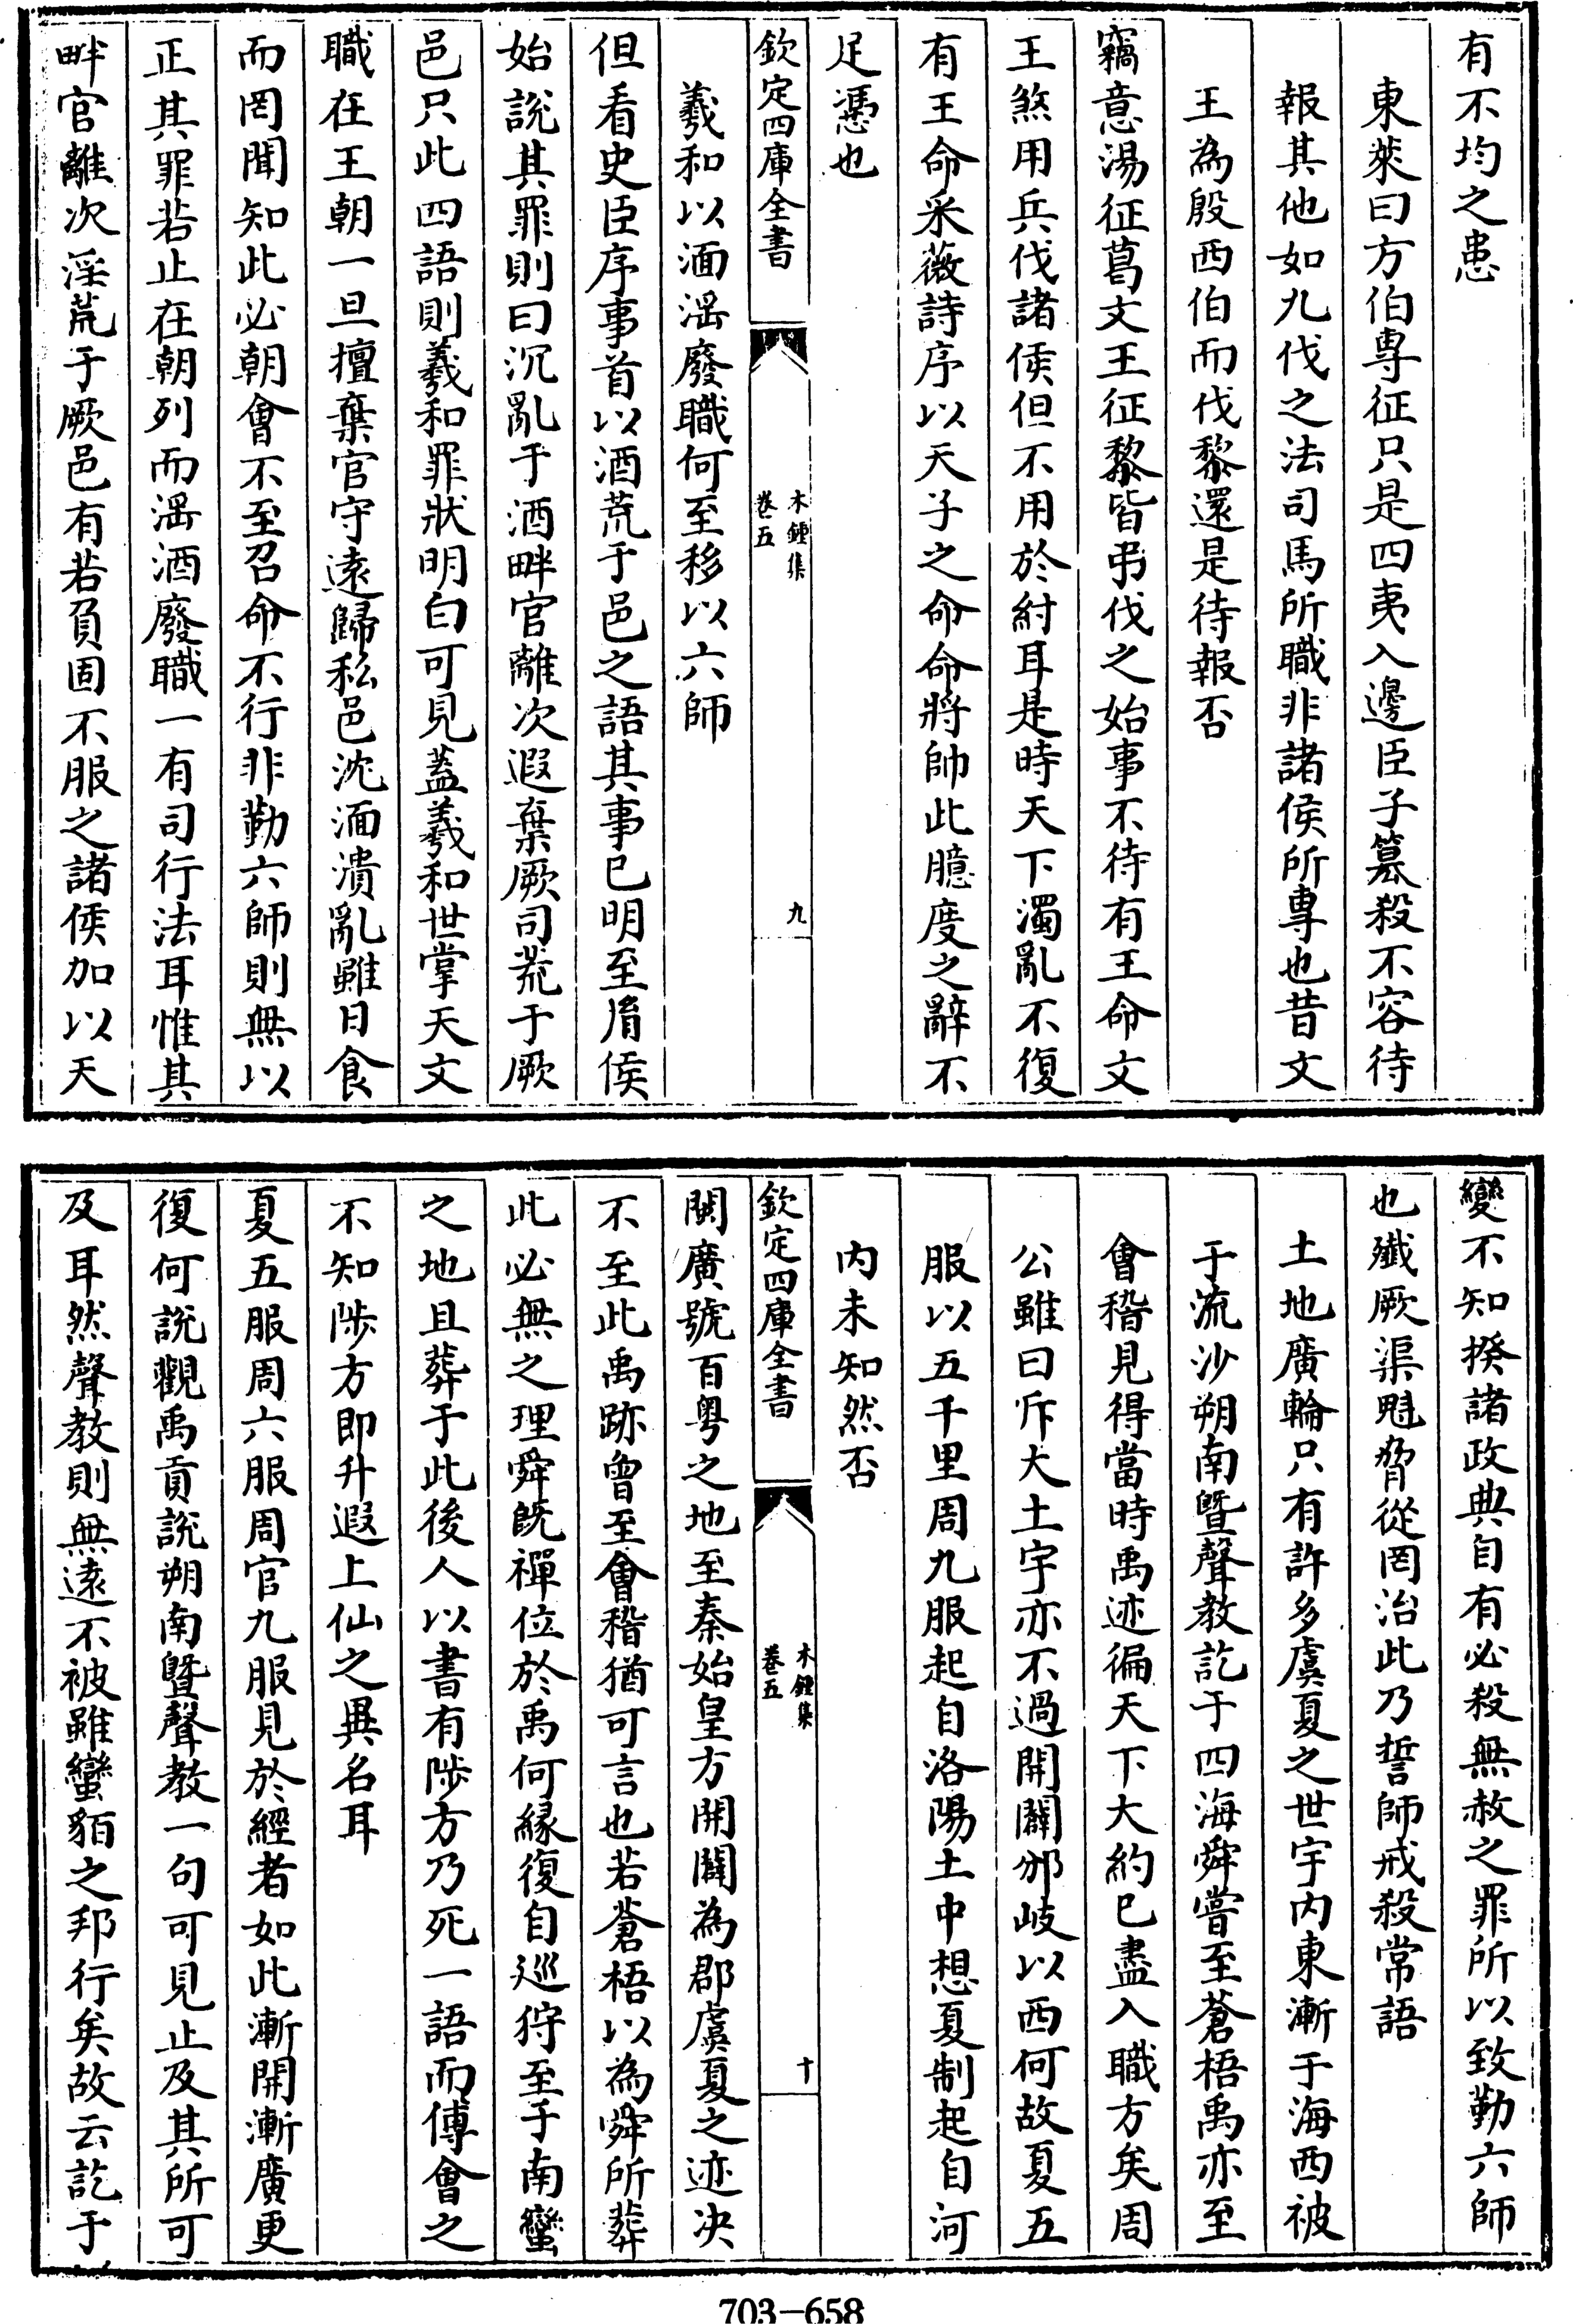 有不均之患
東萊曰方伯專征只是四夷入邊臣子簒殺不容待
報其他如九伐之法司馬所職非諸侯所專也昔文
王為殷西伯而伐黎還是待報否
竊意湯征葛文王征黎皆弔伐之始事不待有王命文
王煞用兵伐諸侯但不用於紂耳是時天下濁亂不復
有王命采薇詩序以天子之命命將帥此臆度之辭不
足憑也
欽定四庫全書
木鍾集
卷五
九
羲和以湎淫廢職何至移以六師
但看史臣序事首以酒荒于邑之語其事已明至胤侯
始説其罪則曰沉亂于酒畔官離次遐棄厥司荒于厥
邑只此四語則羲和罪狀明白可見蓋羲和世掌天文
職在王朝一旦擅棄官守遠歸私邑沈湎潰亂雖日食
而罔聞知此必朝會不至召命不行非勤六師則無以
正其罪若止在朝列而湎酒廢職一有司行法耳惟其
畔官離次淫荒于厥邑有若負固不服之諸侯加以天
變不知揆諸政典自有必殺無赦之罪所以致勤六師
也殲厥渠魁脅從罔治此乃誓師戒殺常語
土地廣輪只有許多虞夏之世宇内東漸于海西被
于流沙朔南曁聲教訖于四海舜嘗至蒼梧禹亦至
會稽見得當時禹迹徧天下大約已盡入職方矣周
公雖曰斥大土宇亦不過開闢邠岐以西何故夏五
服以五千里周九服起自洛陽土中想夏制起自河
内未知然否
欽定四庫全書
木鍾集
卷五
十
閩廣號百粤之地至秦始皇方開闢為郡虞夏之迹决
不至此禹跡曾至會稽猶可言也若蒼梧以為舜所葬
此必無之理舜旣禪位於禹何縁復自廵狩至于南蠻
之地且葬于此後人以書有陟方乃死一語而傅會之
不知陟方即升遐上仙之異名耳
夏五服周六服周官九服見於經者如此漸開漸廣更
復何説觀禹貢説朔南曁聲教一句可見止及其所可
及耳然聲教則無遠不被雖蠻貊之邦行矣故云訖于
703-658